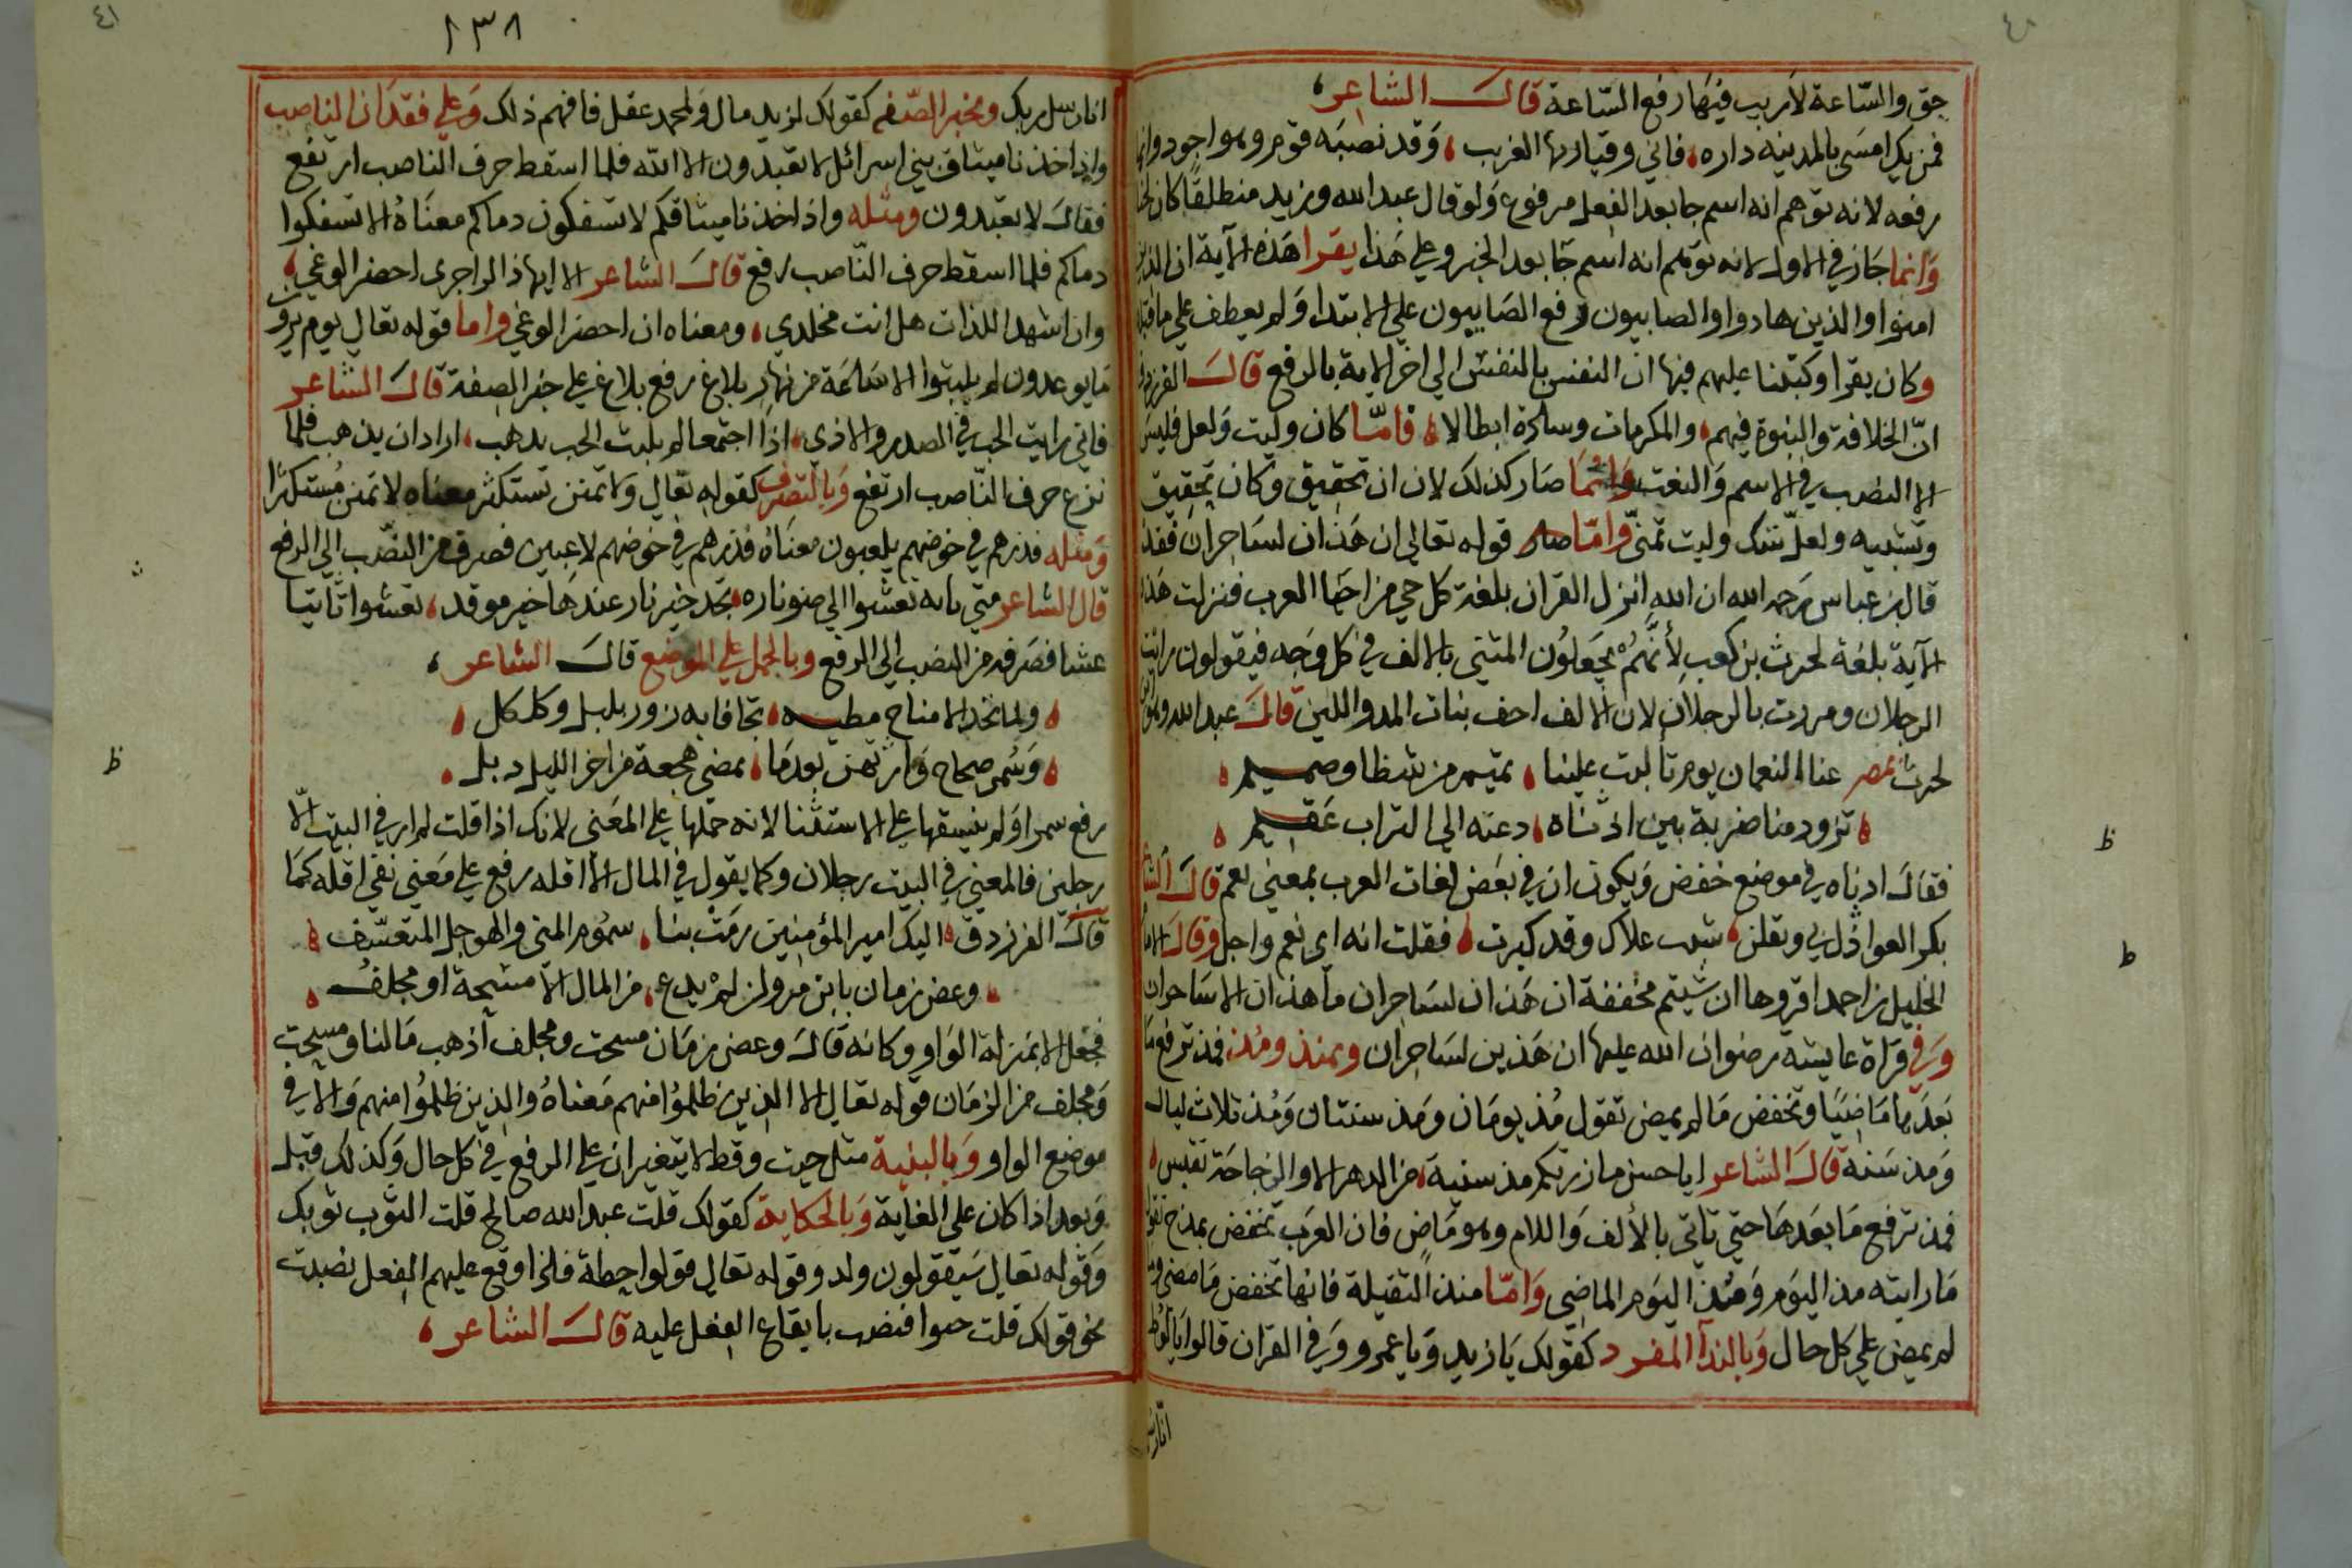 حق والسّاعة لا ريب فيها رفع السّاعة قال الشاعر
فمن يك امسَى بالمدينه داره فاني وقيار بها لغريب وَقد نصبَه قوم وهو اجود وانما
رفعه لانه توهم انه اسم جا بعد الفعل مرفوع وَلو قال عبد الله وزيد منطلقًا كان لحنا
وَانما جَاز في الاول لانه توهم انه اسم جَا بعد الخبر وعلي هَذا يقرا هَذه الآية ان الذين
امنوا والذين هادوا والصابيون رفع الصَابيون علي الابتدا وَلم يعطف علي ما قبله
وكان يقرا وكتبنا عليهم فيها ان النفس بالنفس الي اخر الاية بالرفع قال الفرزدق
انّ الخلافة والنبوة فيهم والمكرمات وسادة ابطالا فامّا كان وليت وَلعل فليسَ
الا النصب في الاسم وَالنعت وَانما صَار كذلك لان ان تحقيق وكان تحقيق
وتشبيه ولعلّ شك وليت تمنّي وامّا قوله تعالي ان هَذان لسَاحران فقد
قال بن عباس رَحمه الله ان الله انزل القران بلغة كل حي من احيَا العرب فنزلت هَذه
الآية بلغة لحرث بن كعب لأنَّهُمْ يجَعلوُن المثني بالالف في كل وَجه فيقولون رايت
الرجلان ومررت بالرجلان لان الالف اخف بنات المد واللين قالَ عبد الله
لحرث عنا النعمان يوم تألبت علينا تميم من شظا وصميم
تزود منا ضربة بين اذناه دعته الي التراب عَقيم
فقالَ اذناه في موضع خفض وَيكون ان في بعَض لغات العرب بمعني نعم قال الشاعر
بكر العواذل لي وتقلن شيب علاك وقد كبرت فقلت انه اي نعم واجل وقالَ
الخليل بن احمد اقروها ان شيتم مخففة ان هَذان لسَاحران ما هذان الا سَاحران
وَفي قرَاة عايشة رضوان الله عليها ان هَذين لسَاحرَان وبمنذ ومُذ فمذ ترفع مَا
بَعدَها مَا مَاضيًا وتخفض مَا لم يمض تقول مُذ يومَان ومَذ سنتان وَمُذ ثلاث ليال
وَمذ سَنة قالَ الشاعر ايا حسن ما زرتكم مذ سنيةَ من الدهر الا والزجاجَة تقلس
فمذ ترفع مَا بعَدهَا حتي تاتي بالألف وَاللام وهو مَاضٍ فان العرَب تخفض بمذ ح تقول
مَا رايته مذ اليَوَم وَمُنذ اليَوم الماضي وَامّا منذ الثقيلة فانها تخفض مَا مضي وما
لم يمض علي كل حال وَبالندآ المفرد كقولك يَا زيد وَيا عمرو وَفي القران قالوا يا لُوط
انا رسل
١٣٨
انا رسل ربك وبخبر الصّفه كقولك لزيد مال وَلمحمد عقل فافهم ذلك وَعلي فقدَان الناصب
واذ اخذنا ميثاق بني اسرائل لا تعبدون الا الله فلما اسقط حرف الناصب ارتفع
فقالَ لا تعبدون ومثله واذ اخذنا ميثاقكم لا تسفكون دماكم معنَاهُ الا تسفكوا
دماكم فلما اسقط حرف النّاصب رفع قالَ الشاعر الا ايها ذا الزاجري احضر الوغي
وان اشهد اللذات هل انت مخلدي ومعناه ان احضر الوغي واما قوله تعالي يوم يرون
مَا يوعدون لم يلبثوا الا سَاعَة من نهار بلاغ رفع بلاغ علي خبر الصفة قالَ الشاعر
فاني رايت الحب في الصدر والاذي اذا اجتمعا لم يلبث الحب يذهب اراد ان يذهب فلما
نزع حرف النّاصب ارتفع وَبالتصرف كقوله تعالي وَلا تمنن تستكثر معناه لا تمنن مُستكثرا
وَمثله فذرهم في خوضهم يلعبون معنَاهُ فذرهم في خوضهم لاعبين فصرف من النصّب الي الرفع
قال الشاعر متي تاته تعشوا الي ضو ناره تجد خير نار عندهَا خير موقد تعشوا تَاتيا
عشا فصَرفه من النصب الي الرفع وبالحمل علي الموضع قالَ الشاعر
ولم اتخذ الا مناخ مطيه تجافا به زور بليل وكلكل
وَسُمر صحاح وَارثهن بعدمَا بمضي هجعة من اخر الليل ذبل
رفع سمرا وَلم ينسقها علي الاستثنا لانه حمَلها علي المعَني لانك اذا قلت لم ار في البيت الّا
رجلين فالمعني في البيت رجلان وكما يقول في المال الّا اقله رفع علي مَعني نفي اقله كمَا
قالَ الفرزدق اليك امير المؤمنين رمَتْ بنا سموُم المني والهوجل المتعسّف
وعض زمان يا بن مروان لمْ يدع من المال الّا مسحة او مجلفُ
فجعل الا بمَنزلة الوَاو وكانه قالَ وعض زمَان مسحت ومجلف أذهب مَالنا ومسحت
وَمجلف من الزمَان قوله تعالي الا الذين ظلموُا منهم مَعناهُ والذين ظلمُوا منهم وَالا في
موضع الواو وَبالبنية مثل حيث وقط لا يتغيران علي الرفع في كل حال وَكذلك قبل
وَبعد اذا كان علي الغاية وَبالحكاية كقولك قلت عبد الله صالح قلت الثوَب ثوبك
وَقوله تعالي سَيقولون ولد وقوله تعالي قولوا حطة فلما اوقع عليهم الفعل نصبت
نحو قولك قلت فنصب بايقاع الفعل عليه قالَ الشاعر